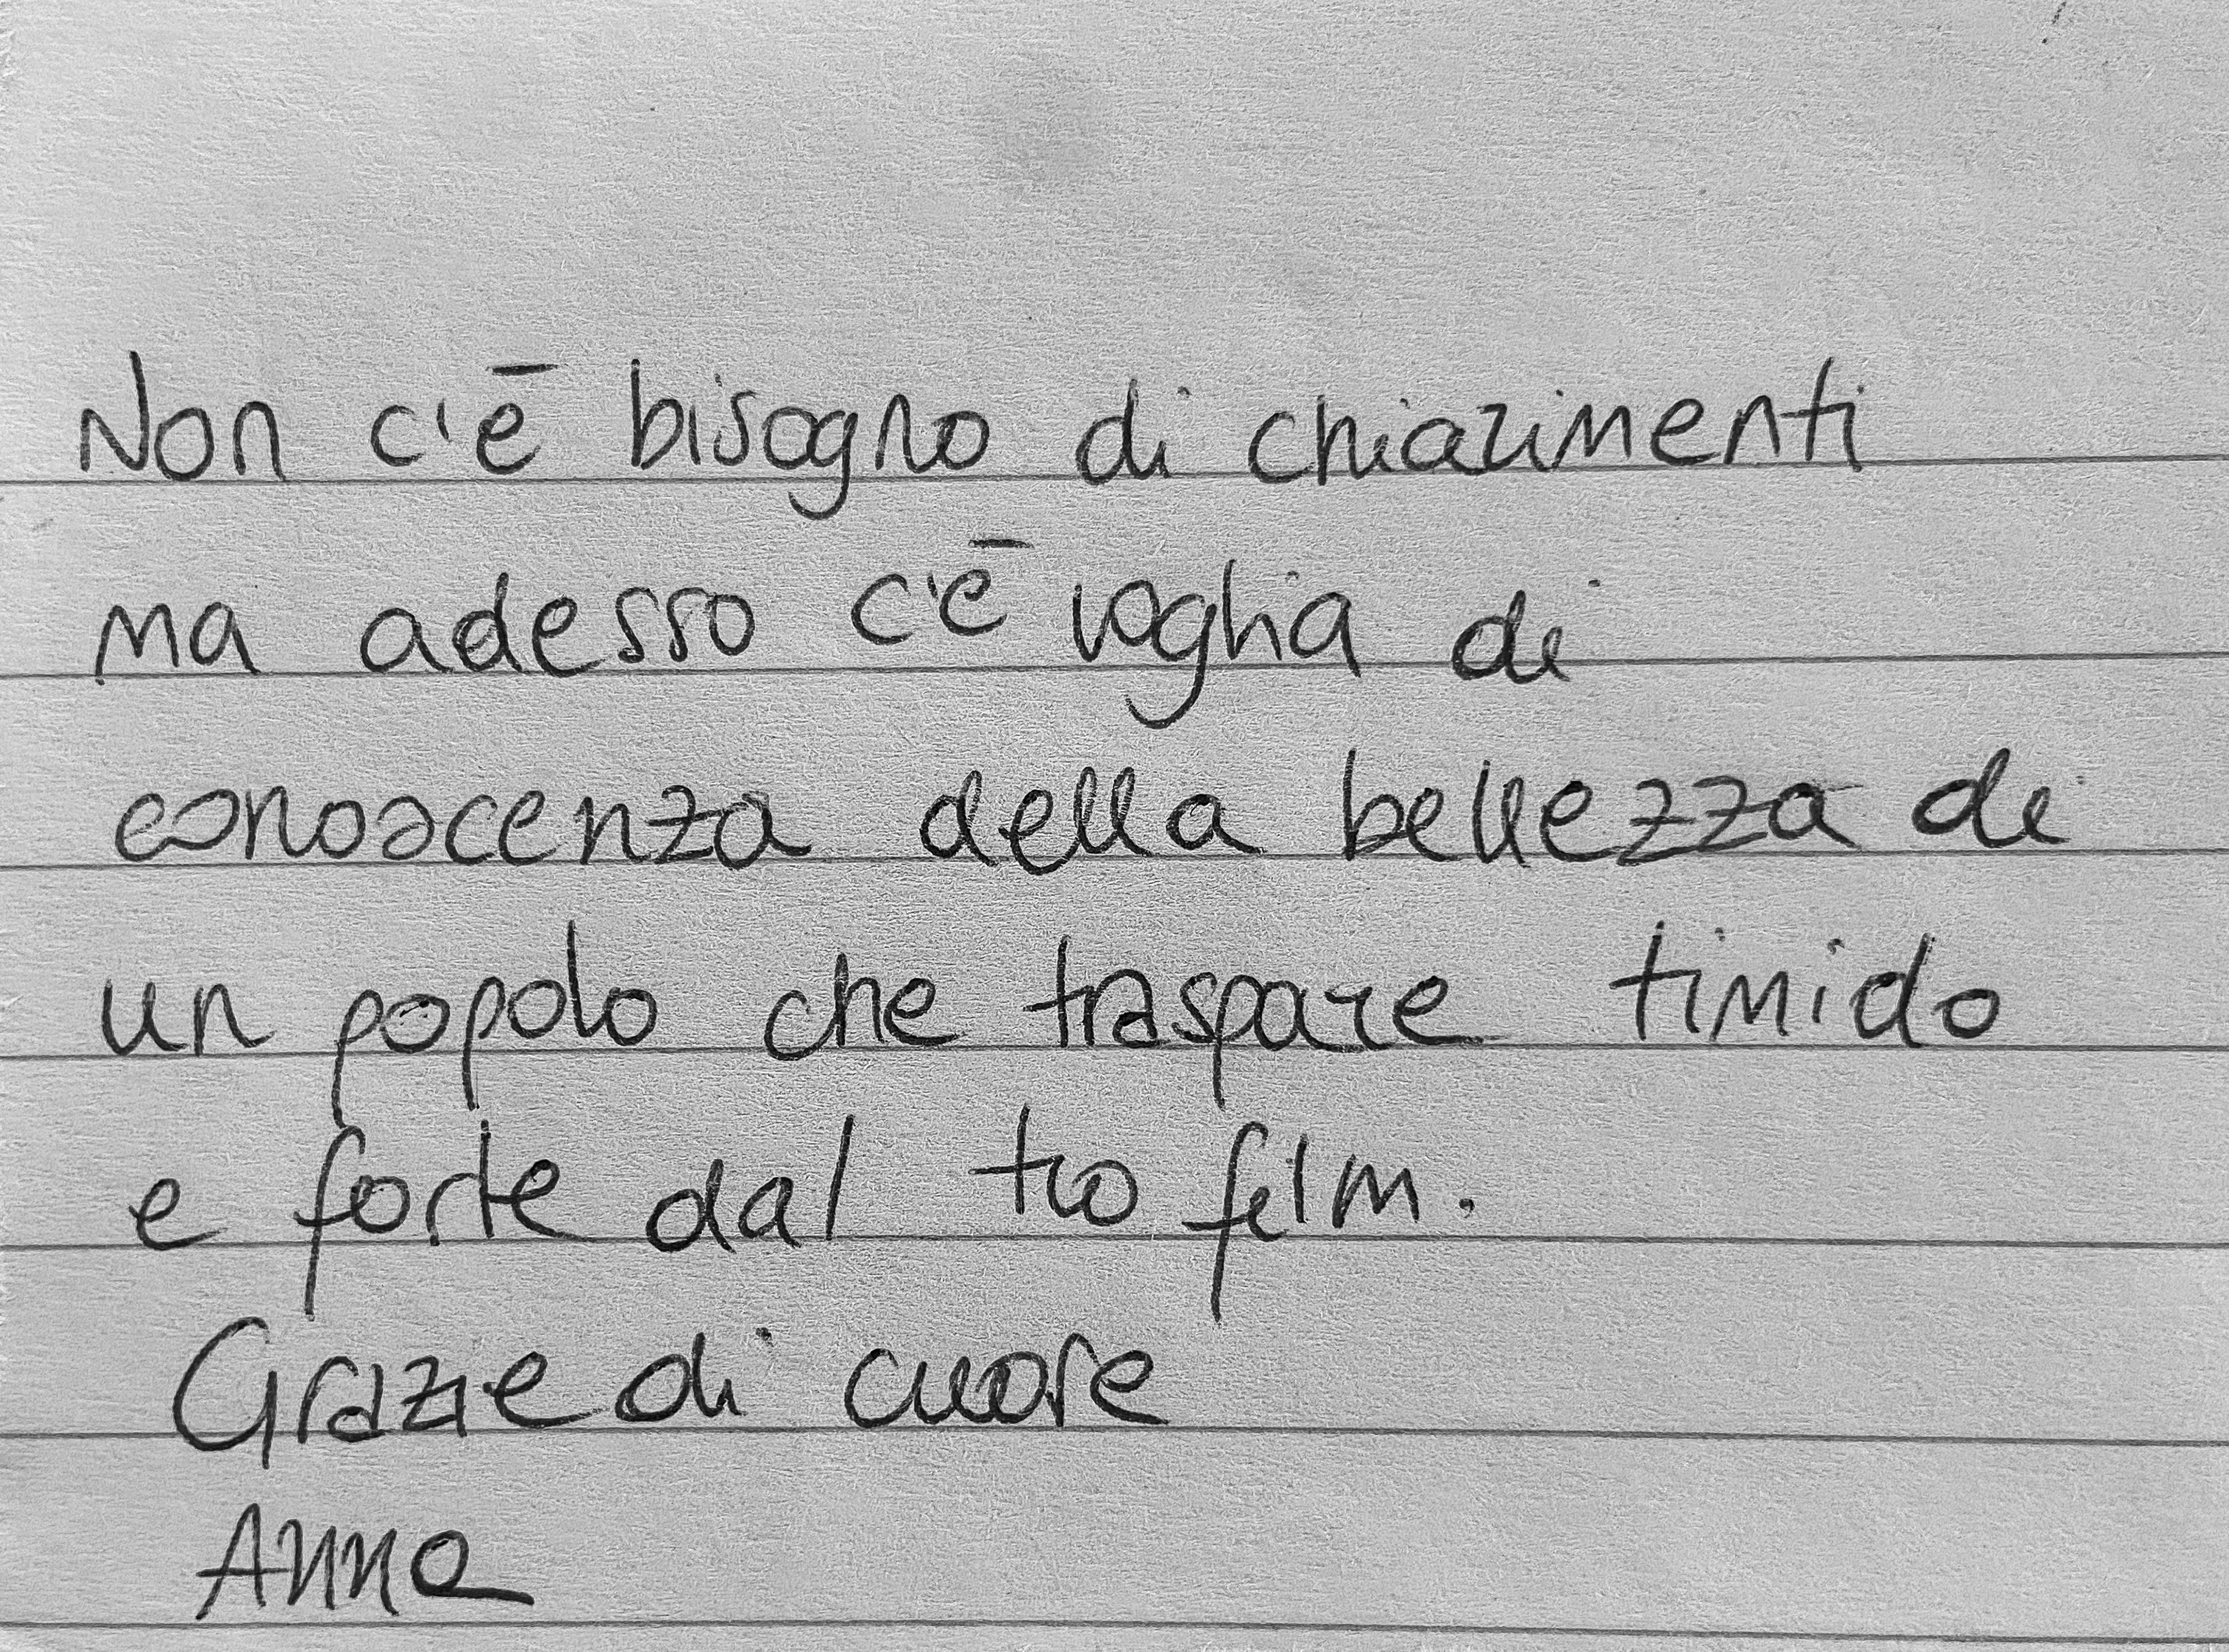 Non c'è bisogno di chiarimenti
ma adesso c'è voglia di
conoscenza della bellezza di
un popolo che traspare timido
e forte dal tuo film.
Grazie di cuore
Anna